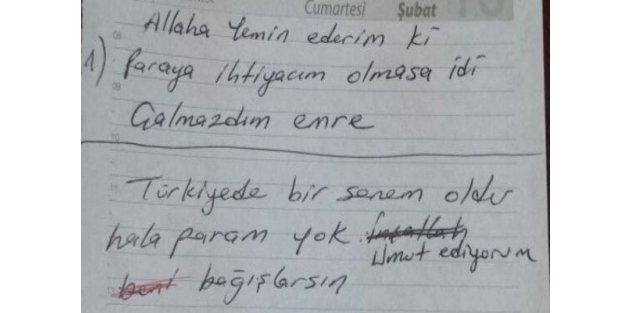 Cumartesi Şubat 10
Allaha Yemin ederim ki
1) Paraya ihtiyacım olmasa idi
Çalmazdım emre
Türkiyede bir senem oldu
hala param yok. İnşallah
Umut ediyorum
beni bağışlarsın